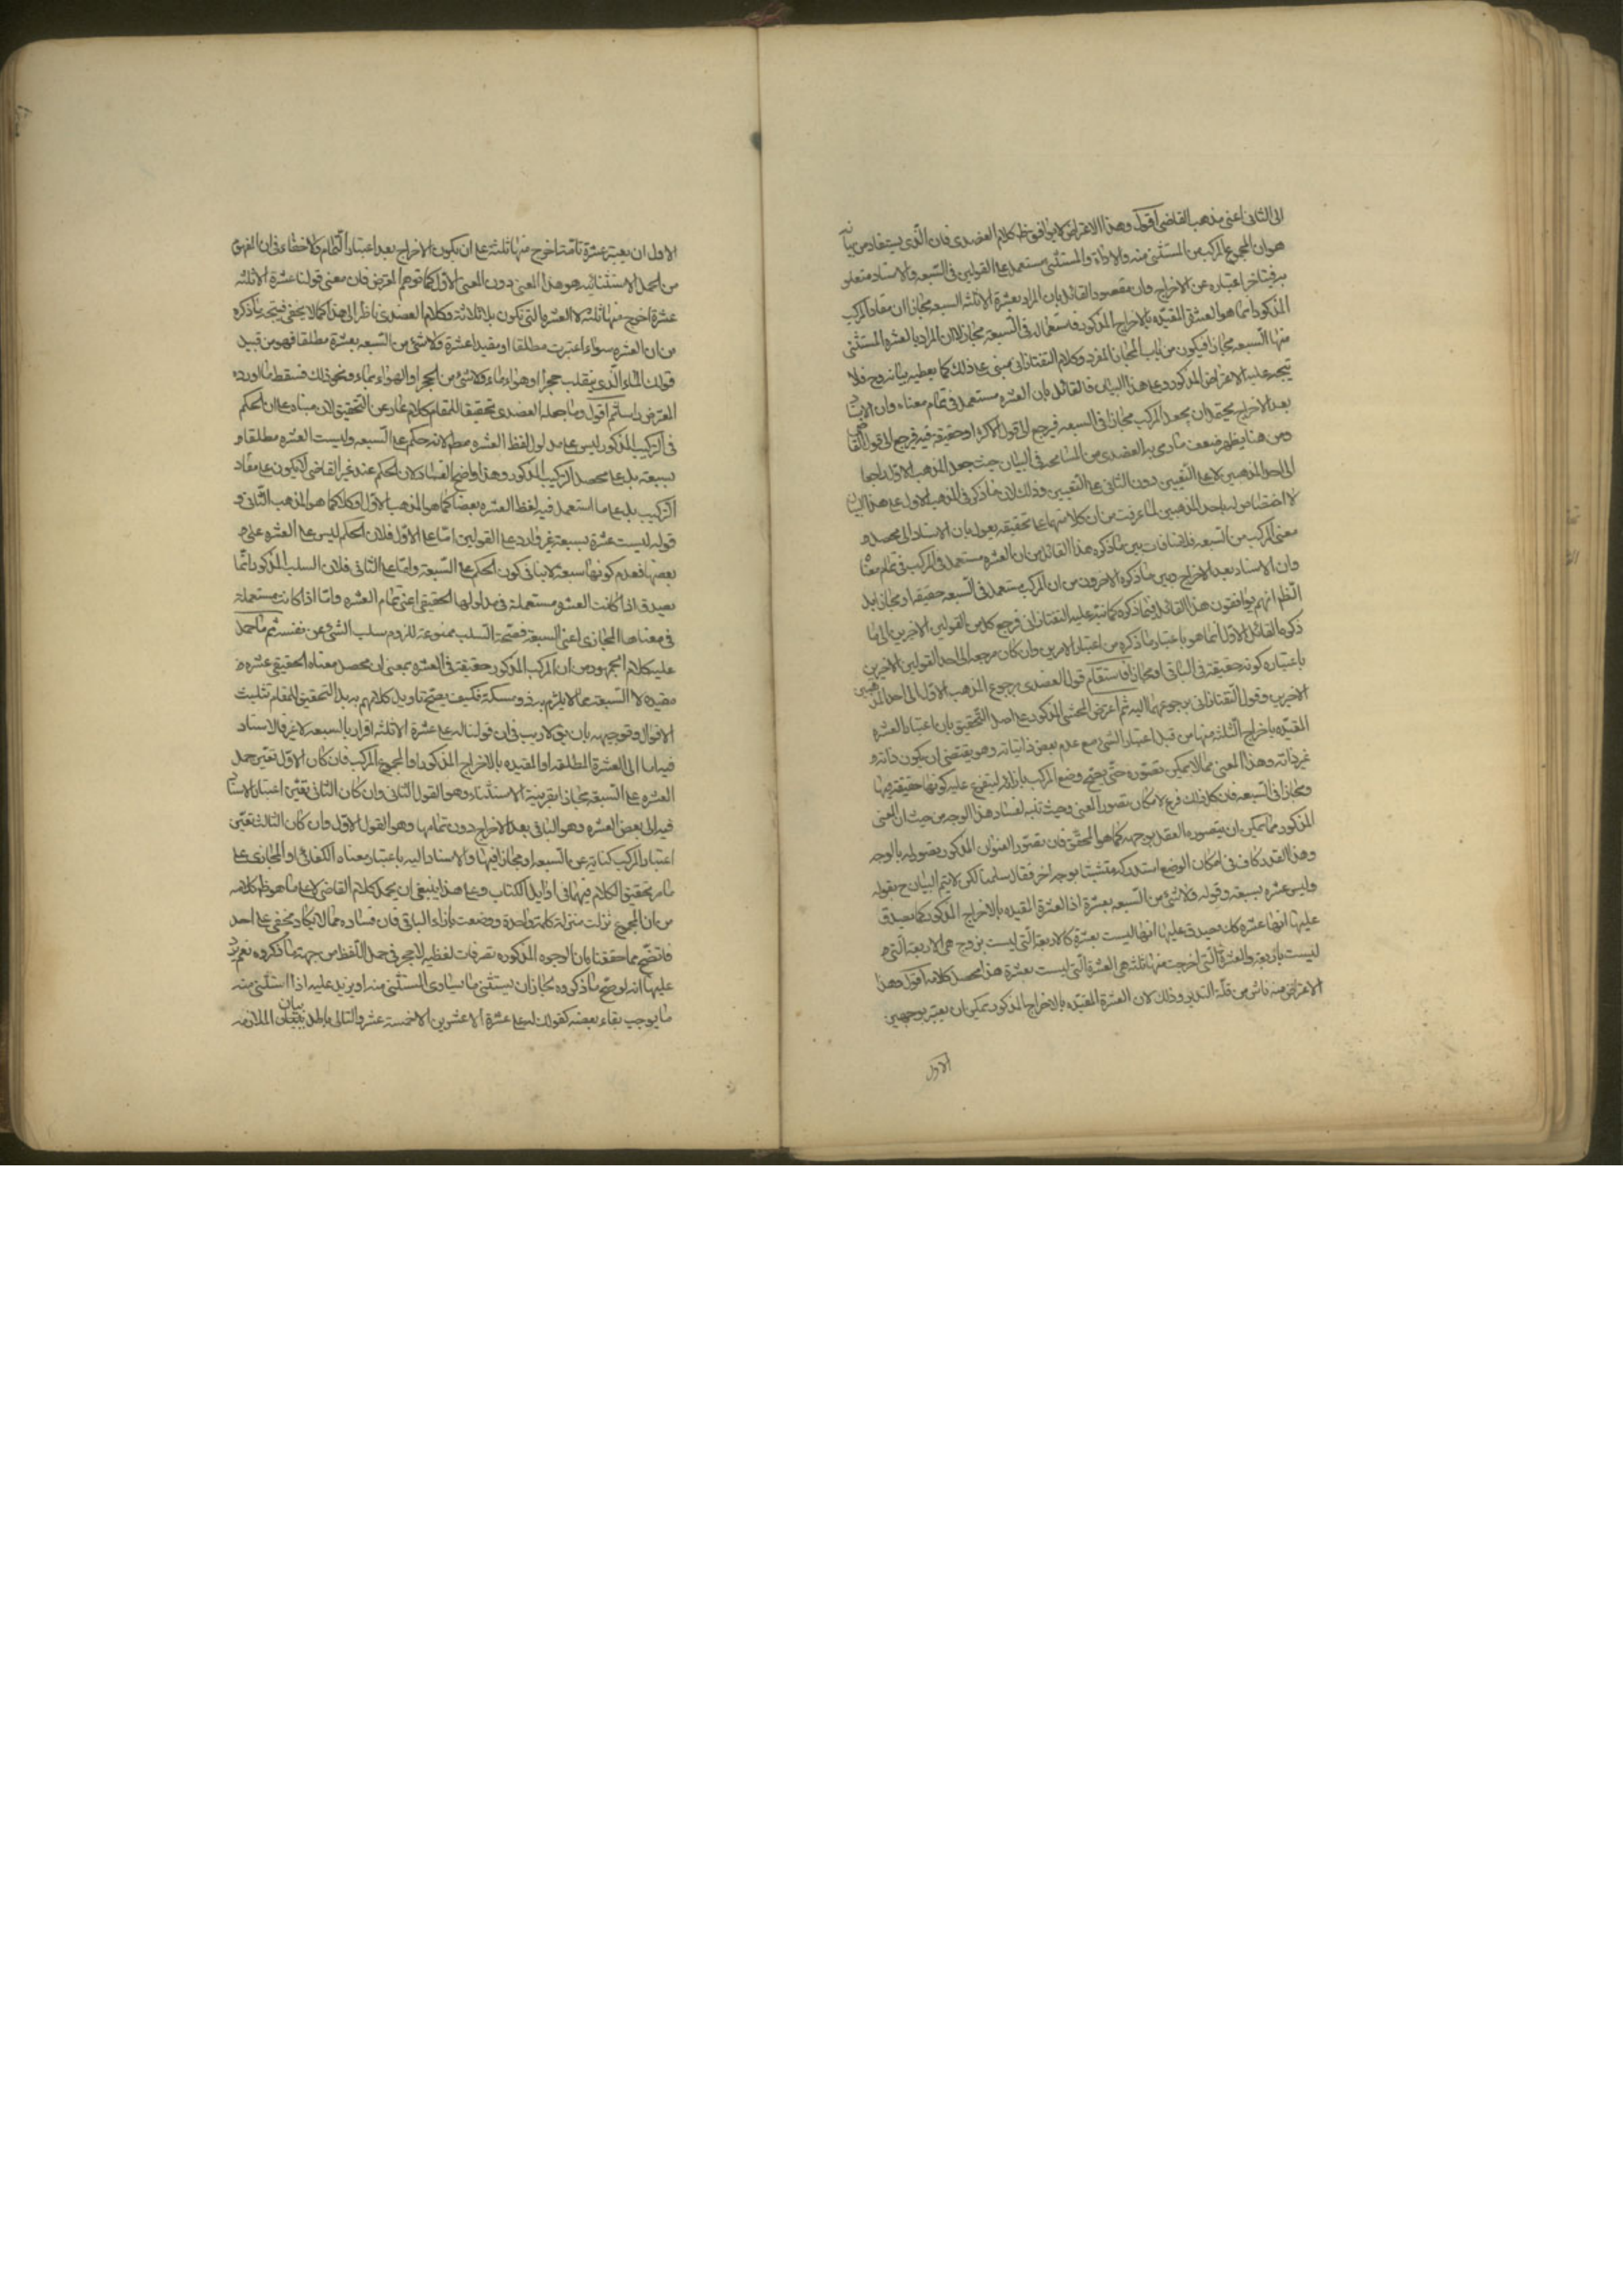 الى الثانى اعنى مذهب القاضى اقول وهذا الاعتراض لا يوافق ظ كلام العضدى فان الذى يستفاد من بيانه
هو ان المجموع المركب من المستثنى منه والاداة والمستثنى مستعمل على القولين فى السبعه والاسناد متعلق
به فيتاخر اعتباره عن الاخراج فان مقصود القائل بان المراد بعشرة الا ثلثه السبعه مجازا ان مفاد المركب
المذكور انما هو العشرة المقيده بالاخراج المذكور فاستعماله فى السبعه مجاز لا ان المراد بالعشره المستثنى
منها السبعه مجازا فيكون من باب المجاز المفرد وكلام التفتازانى مبنى على ذلك كما يعطيه بيانه وح فلا
يتجه عليه الاعتراض المذكور وعلى هذا البيان فالقائل بان العشره مستعمل فى تمام معناه وان الاسناد
بعد الاخراج يحتمل ان يجعل المركب مجازا فى السبعه فيرجع الى قول الاكثر او حقيقة فيه فيرجع الى قول القاضى
ومن هنا يظهر ضعف ما فى العضدى من المسامحه فى البيان حيث جعل المذهب الاول راجعا
الى احد المذهبين لا على التعيين دون الثانى على التعيين وذلك لان ما ذكر فى المذهب الاول على هذا البيان
لا اختصاص له باحد المذهبين لما عرفت من ان كلا منهما على تحقيقه يقول بان الاسناد الى محصل
معنى المركب من السبعه فلا منافات بين ما ذكره هذا القائل من ان العشره مستعمل فى المركب فى تمام معناه
وان الاسناد بعد الاخراج وبين ما ذكره الاخرون من ان المركب مستعمل فى السبعه حقيقة او مجازا بل
الظ انهم يوافقون هذا القائل فيما ذكره كما نبه عليه التفتازانى فرجع كل من القولين الاخرين الى ما
ذكره القائل الاول انما هو باعتبار ما ذكره من اعتبار الامرين وان كان مرجعه الى احد القولين الاخرين
باعتبار كونه حقيقة فى الباقى او مجازا فاستقام قول العضدى برجوع المذهب الاول الى احد المذهبين
الاخرين وقول التفتازانى برجوعهما اليه ثم اعترض المحشى المذكور على اصل التحقيق بان اعتبار العشره
المقيده باخراج الثلثه منها من قبيل اعتبار الشئ مع عدم بعض ذاتياته وهو يقتضى ان يكون ذاته
غير ذاته وهذا المعنى مما لا يمكن تصوره حتى يصح وضع المركب بازائه ليتفرع عليه كونها حقيقة فيها
ومجازا فى السبعه فان كل ذلك فرع لامكان تصور المعنى وحيث تنبه لفساد هذا الوجه من حيث ان المعنى
المذكور مما يمكن ان يتصوره العقل بوجهه كما هو المحقق فان تصور العنوان المذكور تصور له بالوجه
وهذا القدر كاف فى امكان الوضع استدركه متشبثا بوجه اخر فقال سلمنا لكن لا يتم البيان ح بقوله
وليس عشره بسبعه وقوله ولا شئ من السبعه بعشرة اذ العشرة المقيده بالاخراج المذكور كما يصدق
عليها انها عشره كك يصدق عليها انها ليست بعشرة كالاربعة التى ليست بزوج هى الاربعة التى
ليست باربعة والعشرة التى اخرجت منها ثلثه هى العشرة التى ليست بعشرة هذا محصل كلامه اقول وهذا
الاعتراض منه ناش من قلة التدبر وذلك لان العشرة المقيده بالاخراج المذكور يمكن ان يعتبر بوجهين
الاول
الاول ان يعتبر عشرة تامة اخرج منها ثلثة على ان يكون الاخراج بعد اعتبار التمام ولا خفاء فى ان المفهوم
من الجمل الاستثنائيه هو هذا المعنى دون المعنى الاول كما توهم المعترض فان معنى قولنا عشرة الا ثلثه
عشرة اخرج منها ثلثه لا العشره التى تكون بلا ثلاثة وكلام العضدى ناظر الى هذا كما لا يخفى فيتجه ما ذكره
من ان العشره سواء اعتبرت مطلقا او مقيدا عشرة ولا شئ من السبعه بعشرة مطلقا فهو من قبيل
قولك الماء الذى ينقلب حجرا او هواء ماء ولا شئ من الحجر او الهواء بماء ونحو ذلك فسقط ما اورده
المعترض باسلم اقول وما جعله العضدى تحقيقا للمقام كلام عار عن التحقيق لان مبناه على ان الحكم
فى التركيب المذكور ليس على مدلول لفظ العشره مط لانه حكم على السبعه وليست العشره مطلقا
بسبعة بل على محصل التركيب المذكور وهذا واضح الفساد لان الحكم عند غير القاضى لا يكون على مفاد
التركيب بل على ما استعمل فيه لفظ العشره بعضا كما هو المذهب الاول او كلا كما هو المذهب الثانى و
قوله ليست عشرة بسبعة غير وارد على القولين اما على الاول فلان الحكم ليس على العشره على
بعضها فعدم كونها سبعة لا ينافى كون الحكم على السبعة واما على الثانى فلان السلب المذكور انما
يصدق اذا كانت العشره مستعملة فى مدلولها الحقيقى اعنى تمام العشره واما اذا كانت مستعملة
فى معناها المجازى اعنى السبعة فصحة السلب ممنوعة للزوم سلب الشئ عن نفسه ثم ما حمل
عليه كلام الجمهور من ان المركب المذكور حقيقة فى العشره بمعنى ان محصل معناه الحقيقى عشره
مقيده لا السبعة مما لا يلتزم به ذو مسكة فكيف يصح تاويل كلامهم به بل التحقيق للمقام تثليث
الاقوال وتوجيهه بان يق لا ريب فى ان قولنا له على عشرة الا ثلثه اقرار بالسبعه لا غير فالاسناد
فيه اما الى العشرة المطلقه او المقيده بالاخراج المذكور او المجموع المركب فان كان الاول تعين حمل
العشره على السبعه مجازا بقرينة الاستثناء وهو القول الثانى وان كان الثانى تعين اعتبار الاسناد
فيه الى بعض العشره وهو الباقى بعد الاخراج دون تمامها وهو القول الاول وان كان الثالث تعين
اعتبار المركب كناية عن السبعه او مجازا فيها والاسناد اليه باعتبار معناه الكنائى او المجازى على
ما مر تحقيق الكلام فيهما فى اوايل الكتاب وعلى هذا ينبغى ان يحمل كلام القاضى لا على ما هو ظ كلامه
من ان المجموع نزلت منزلة كلمة واحدة وضعت بازاء الباقى فان فساده مما لا يكاد يخفى على احد
فاتضح مما حققناه ان الوجوه المذكوره تصرفات لفظيه لا حجر فى حمل اللفظ من جهة ما ذكروه نعم يرد
عليها انه لو صح ما ذكروه لجاز ان يستثنى ما يساوى المستثنى منه او يزيد عليه اذا استثنى منه
ما يوجب بقاء بعضه كقولك له على عشرة الا عشرين الا خمسة عشر والتالى باطل بيان الملازمه